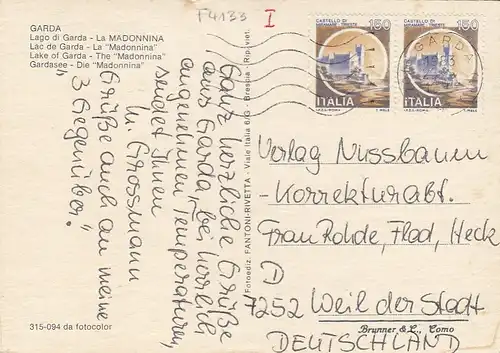 GARDA
Lago di Garda - La MADONNINA
Lac de Garda - La "Madonnina"
Lake of Garda - The "Madonnina"
Gardasee - Die "Madonnina"
F4133
I
CASTELLO DI
MIRAMARE - TRIESTE
150
ITALIA
I.P.Z.S. - ROMA
T. MELE
CASTELLO DI
MIRAMARE - TRIESTE
150
ITALIA
I.P.Z.S. - ROMA
T. MELE
GARDA
Ganz herzliche Grüße
aus Garda, bei herrlich
angenehmen Temperaturen,
sendet Ihnen
M. Grossmann
Grüße auch an meine
"3 Gegenüber."
Fotoediz. FANTONI-RIVETTA - Viale Italia 6/G - Brescia - Rip. viet.
Verlag Nussbaum
-Korrekturabt.
Frau Rohde, Flad, Heck
D
7252 Weil der Stadt
DEUTSCHLAND
315-094 da fotocolor
Brunner & C., Como